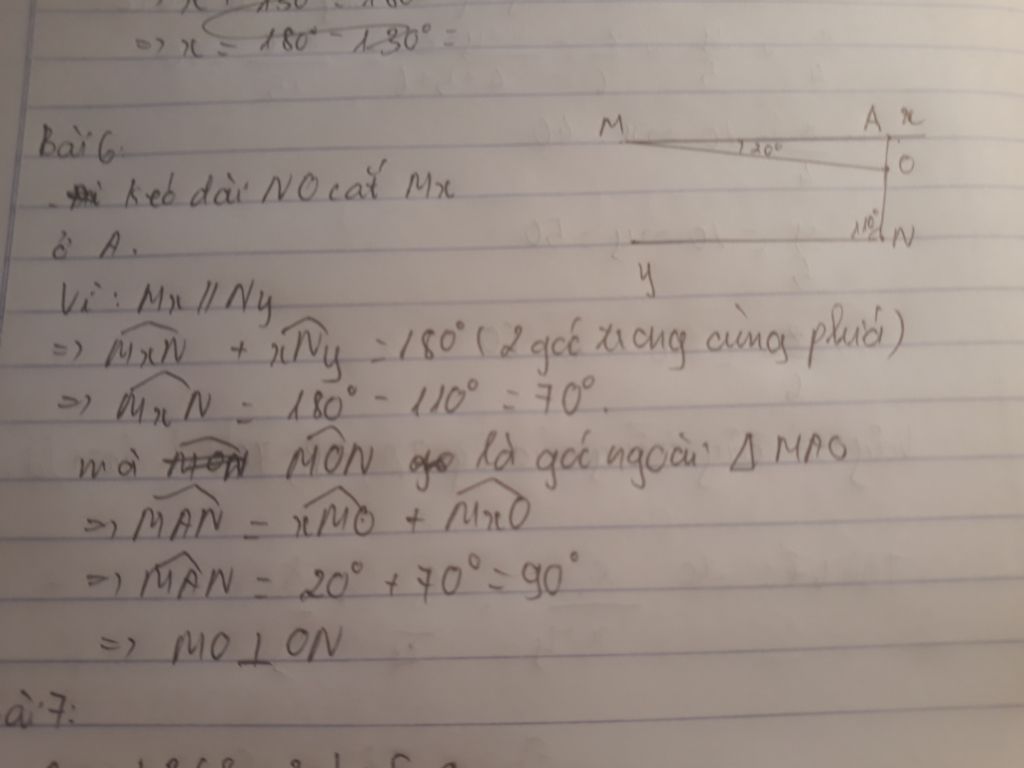 => x = 180° - 130° =
Bài 6:
M A x
20° O
kéo dài NO cắt Mx
110° N
ở A.
y
Vì: Mx // Ny
=> MxN + xNy = 180° (2 góc trong cùng phía)
=> MxN = 180° - 110° = 70°.
mà MON là góc ngoài Δ MAO
=> MAN = xMO + MxO
=> MAN = 20° + 70° = 90°
=> MO ⊥ ON
ài 7: